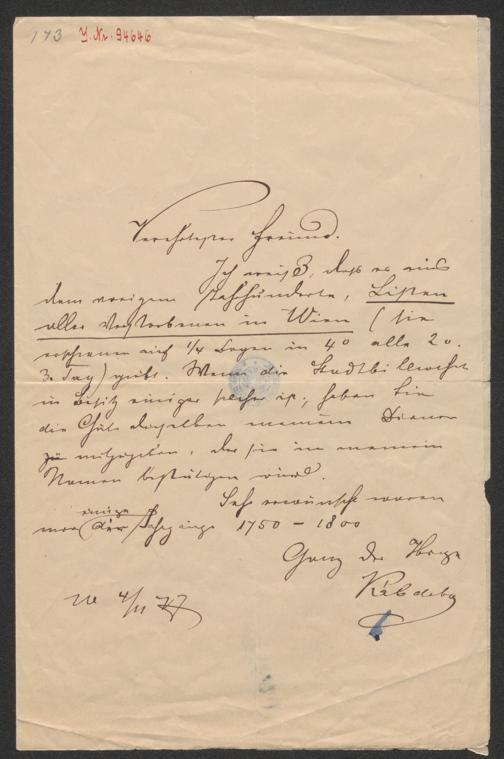 173 J. Nr. 94646
Verehrtester Freund.
Ich weiß, daß es aus
dem vorigen Jahrhunderte, Listen
aller Verstorbenen in Wien (sie
erschienen auf 1/4 Bogen in 4o alle 2o.
3. Tag) gibt. Wenn die Stadtbibliothek
in Besitz einiger solcher ist, haben Sie
die Güte dieselben meinem Diener
zu mitzugeben, der sie in meinem
Namen bestätigen wird.
Sehr erwünscht waren
einige
mir der Jahrgänge 1750 – 1800
Ganz der Ihrige
Kábdebo
4/11 77